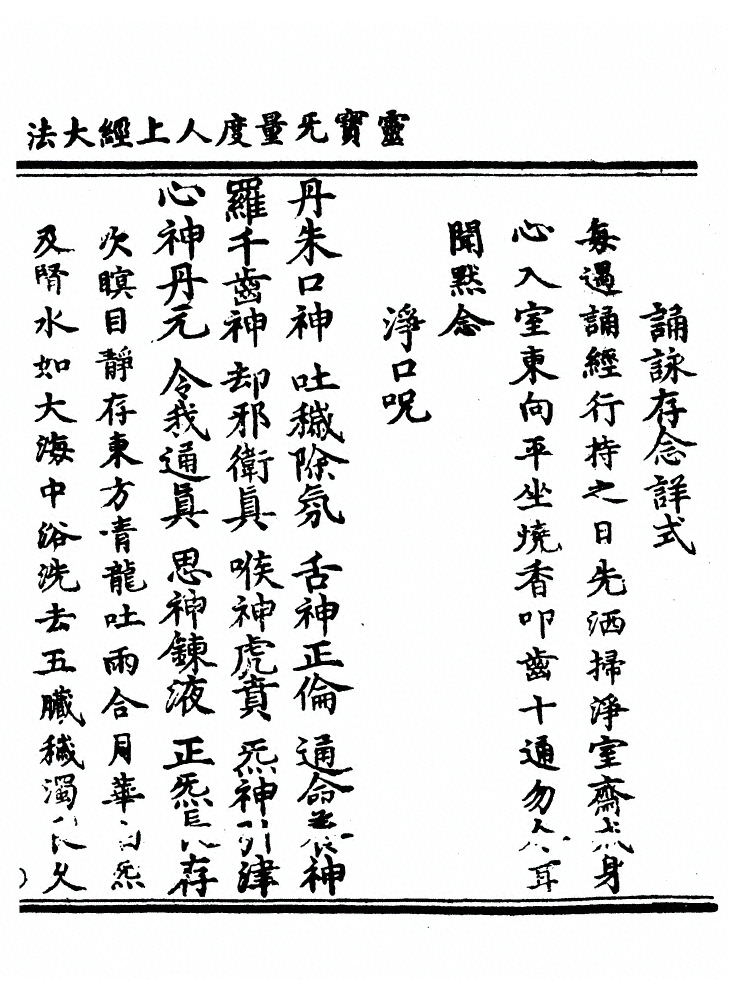 靈寶旡量度人上經大法
誦詠存念詳式
每遇誦經行持之日先洒掃淨室齋戒身
心入室東向平坐燒香叩齒十通勿令耳
聞默念
淨口呪
丹朱口神 吐穢除氛 舌神正倫 通命養神
羅千齒神 却邪衛真 喉神虎賁 炁神引津
心神丹元 令我通真 思神鍊液 正炁長存
次瞑目靜存東方青龍吐雨合月華 炁
及腎水如大海中浴洗去五臟穢濁 久